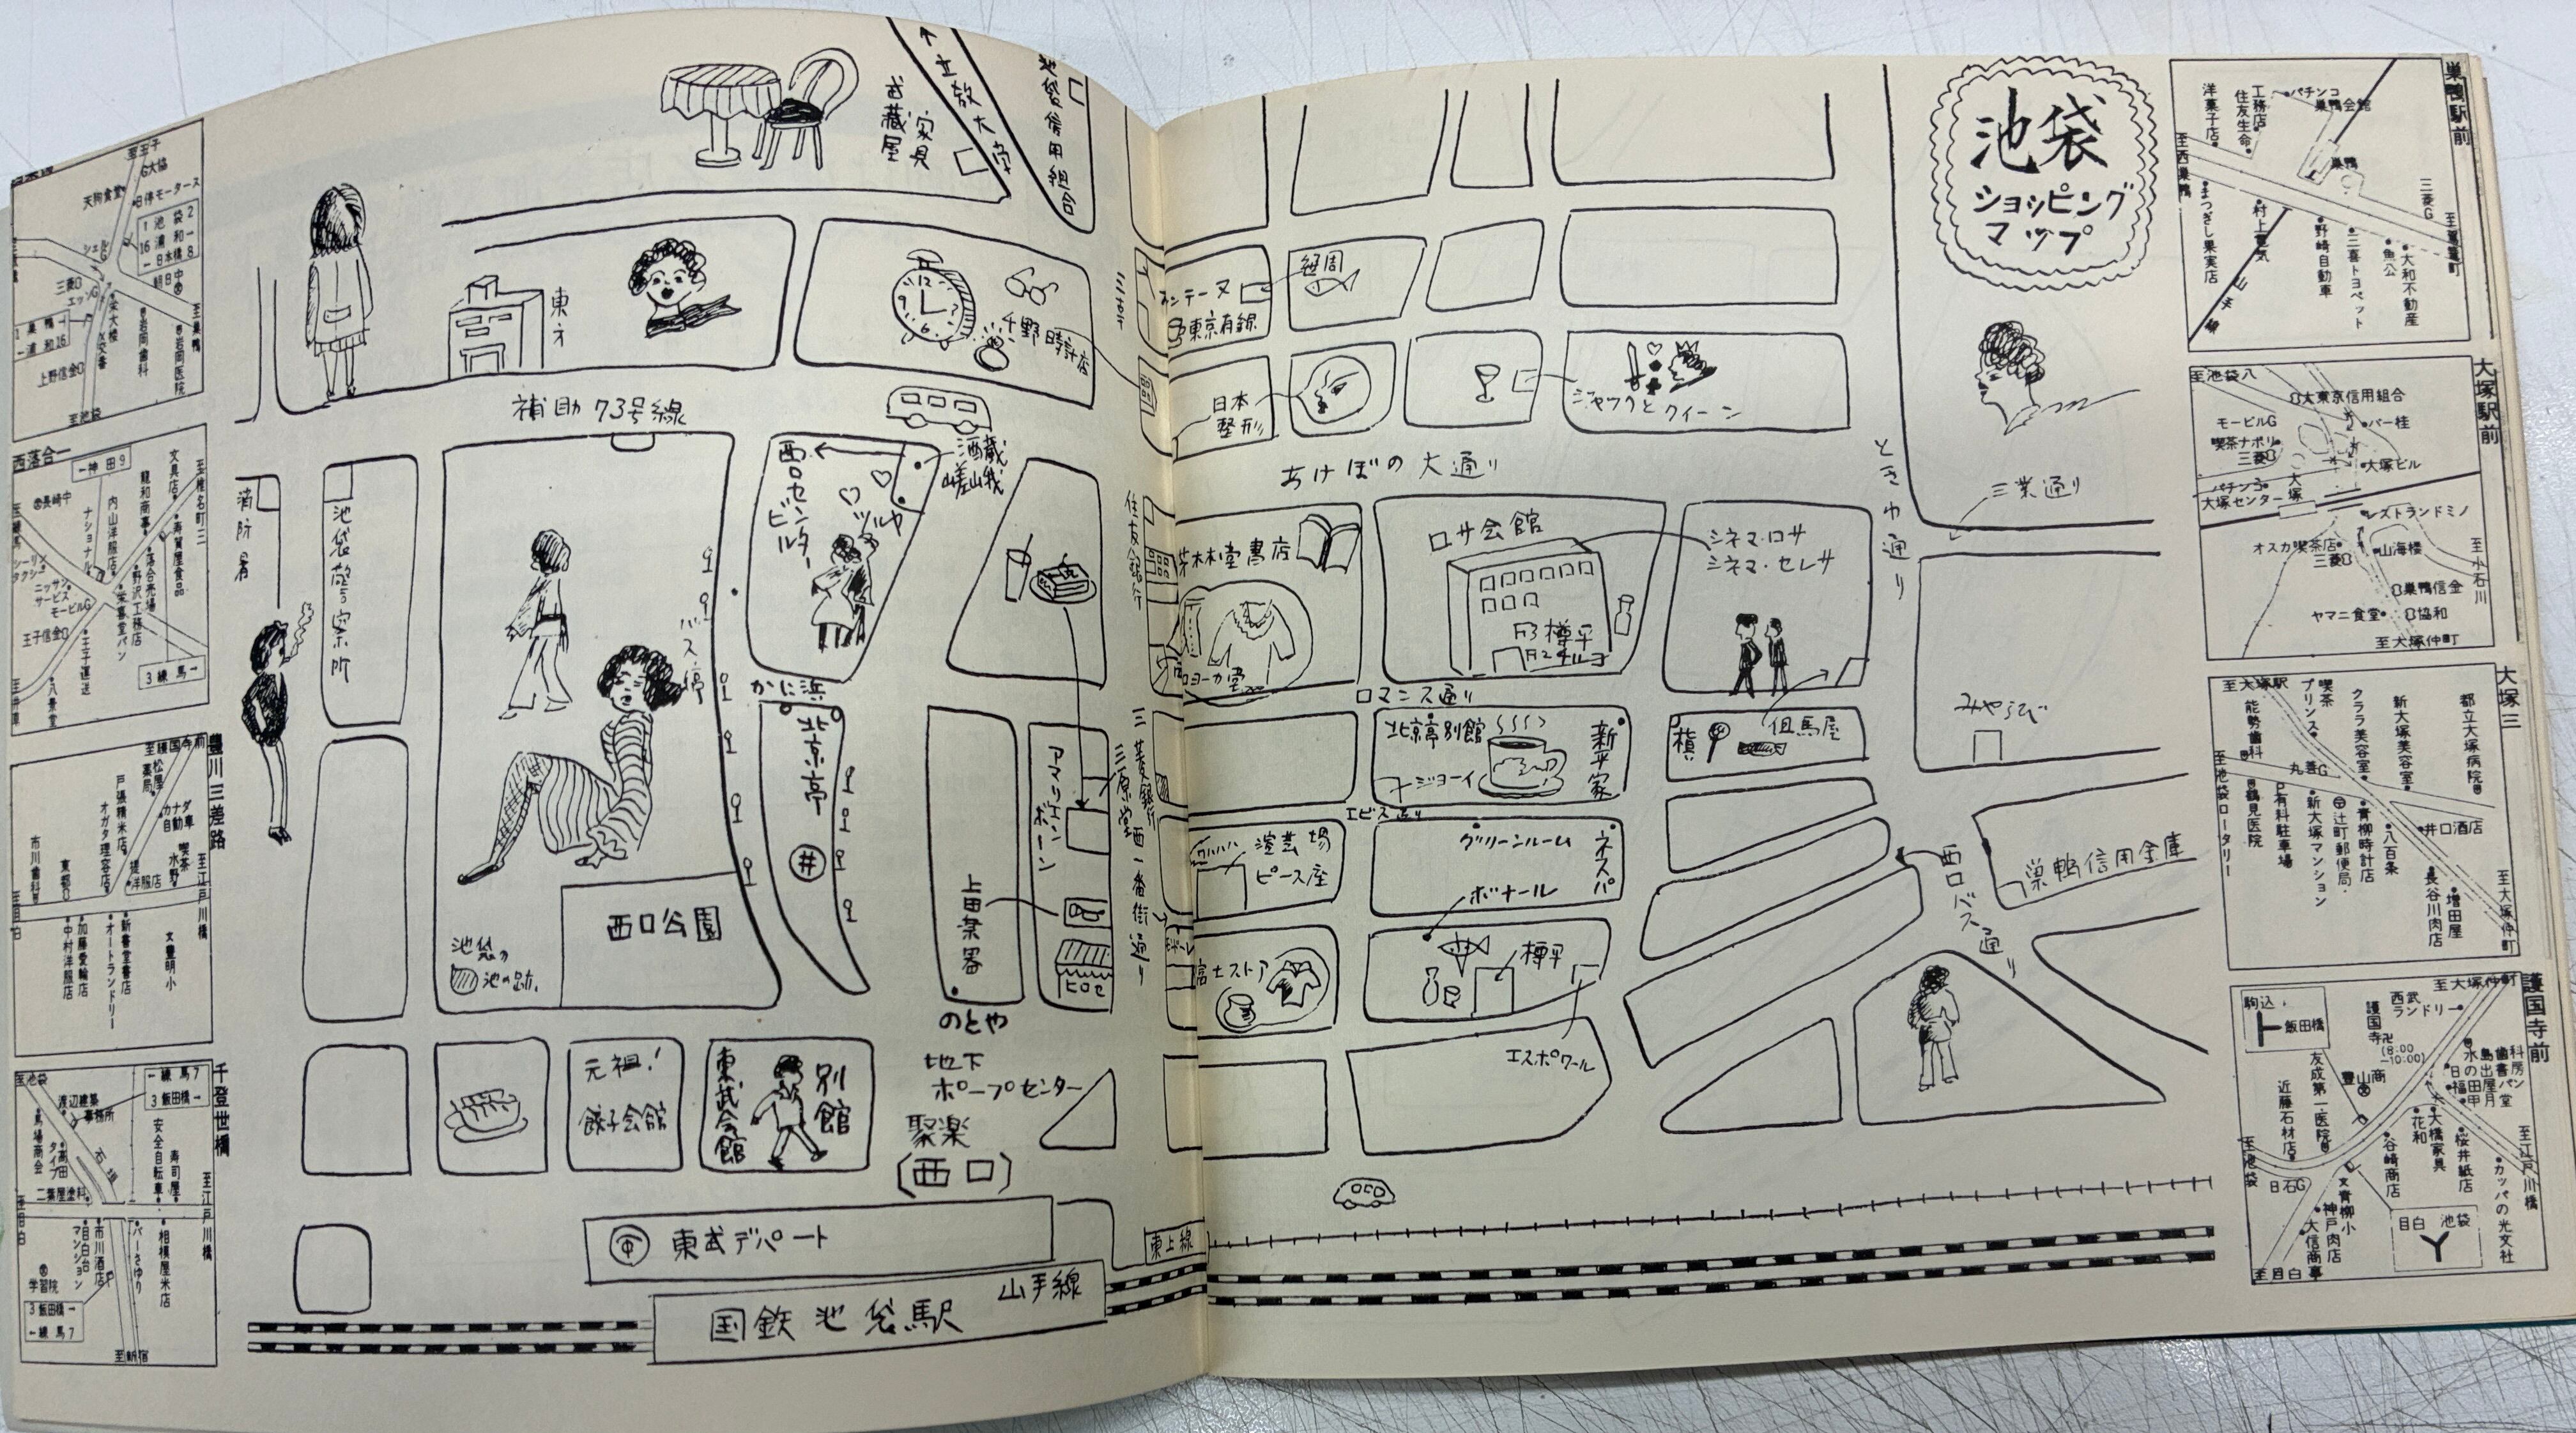 池袋
ショッピング
マップ
↑立教大学
池袋信用組合
家具
武蔵屋
東方
千野時計店
補助73号線
消防署
池袋警察所
西口センタービル
ツルヤ
酒蔵
嵯峨
バス停
かに浜
北京亭
西口公園
池袋の
池の跡
上田楽器
アマリエン
ボーン
三原堂
西一番街通り
ヒロセ
のとや
地下
ポープセンター
聚楽
(西口)
元祖!
餃子会館
東武会館
別館
東武デパート
国鉄池袋駅
山手線
東上線
東京有線
日本
整形
ジャックとクイーン
あけぼの大通り
ときわ通り
三業通り
住友銀行
三菱銀行
芳林堂書店
ロサ会館
シネマ・ロサ
シネマ・セレサ
F3 樽平
ロマンス通り
北京亭別館
ジョーイ
新平家
但馬屋
みやらび
エビス通り
演芸場
ピース座
グリーンルーム
ネスパ
ボナール
富士ストア
樽平
エスポワール
西口バス通り
巣鴨信用金庫
至王子
G大協
天狗食堂
日停モータース
1 池袋 2
16 浦和 ー
ー 日本橋 8
朝日中
シェルG
三菱G
エッソG
栄大楼
交番
岩岡歯科
岩岡医院
至巣鴨
1 巣鴨→
←浦和16
上野信金
至池袋
西落合一
←神田9
長崎中
内山洋服店
ナショナル
龍和商事
文具店
至椎名町三
寿賀屋食品
落合売場
野沢工務店
栄喜堂パン
シーリン
タクシー
ニッサン
サービス
モービルG
王子信金
王子運送
八景堂
至練馬
3 練馬→
豊川三差路
至護国寺前
松屋
薬局
戸張精米店
オガタ理容店
カナダ
自動車
喫茶
水野
堤洋服店
市川歯科
東都
至江戸川橋
至目白
加藤愛輪店
中村洋服店
新書堂書店
オートランドリー
文豊明小
千登世橋
至池袋
←練馬7
3 飯田橋→
渡辺建築
事務所
馬場商会
高田
タイプ
二葉屋塗料
安全自転車
寿司屋
至江戸川橋
至目白
目白台
マンション
市川酒店
バーさゆり
相模屋米店
学習院
3 飯田橋→
←練馬7
至新宿
巣鴨駅前
洋菓子店
工務店
住友生命
パチンコ
巣鴨会館
巣鴨
三菱G
至西巣鴨
まつざし果実店
村上電気
野崎自動車
三喜トヨペット
魚公
大和不動産
至駕籠町
山手線
大塚駅前
至池袋八
大東京信用組合
モービルG
喫茶ナポリ
三菱
バー桂
大塚ビル
パチンコ
大塚センター
大塚
レストランドミノ
オスカ喫茶店
三菱
山海楼
至小石川
巣鴨信金
ヤマニ食堂
協和
至大塚仲町
大塚三
至大塚駅
能勢歯科
喫茶
プリンス
クララ美容室
新大塚美容室
都立大塚病院
丸善G
至池袋ロータリー
鶴見医院
有料駐車場
新大塚マンション
辻町郵便局
青柳時計店
八百条
井口酒店
長谷川肉店
増田屋
至大塚仲町
護国寺前
至大塚仲町
駒込
飯田橋
西武
ランドリー
護国寺
(8:00
-10:00)
友成第一医院
豊山商
近藤石材店
至池袋
日石G
文青柳小
神戸肉店
大信商事
至目白
谷崎商店
花和
大橋家具
桜井紙店
至江戸川橋
カッパの光文社
目白 池袋